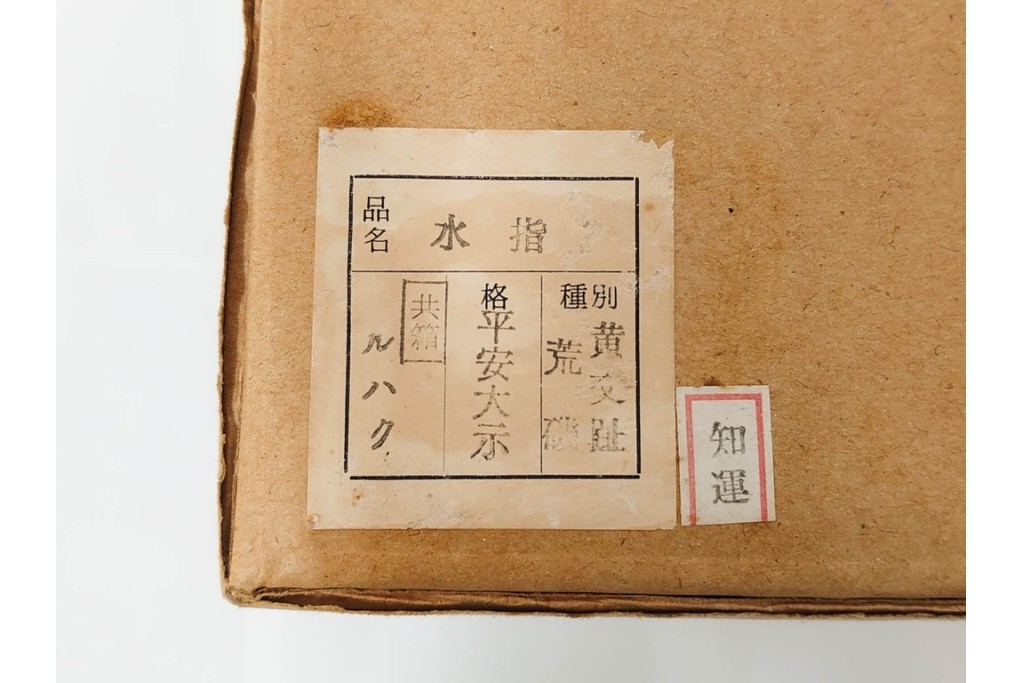 品名
水指
種別
黄交趾
荒磯
格
平安大示
共箱
ルハク
知運